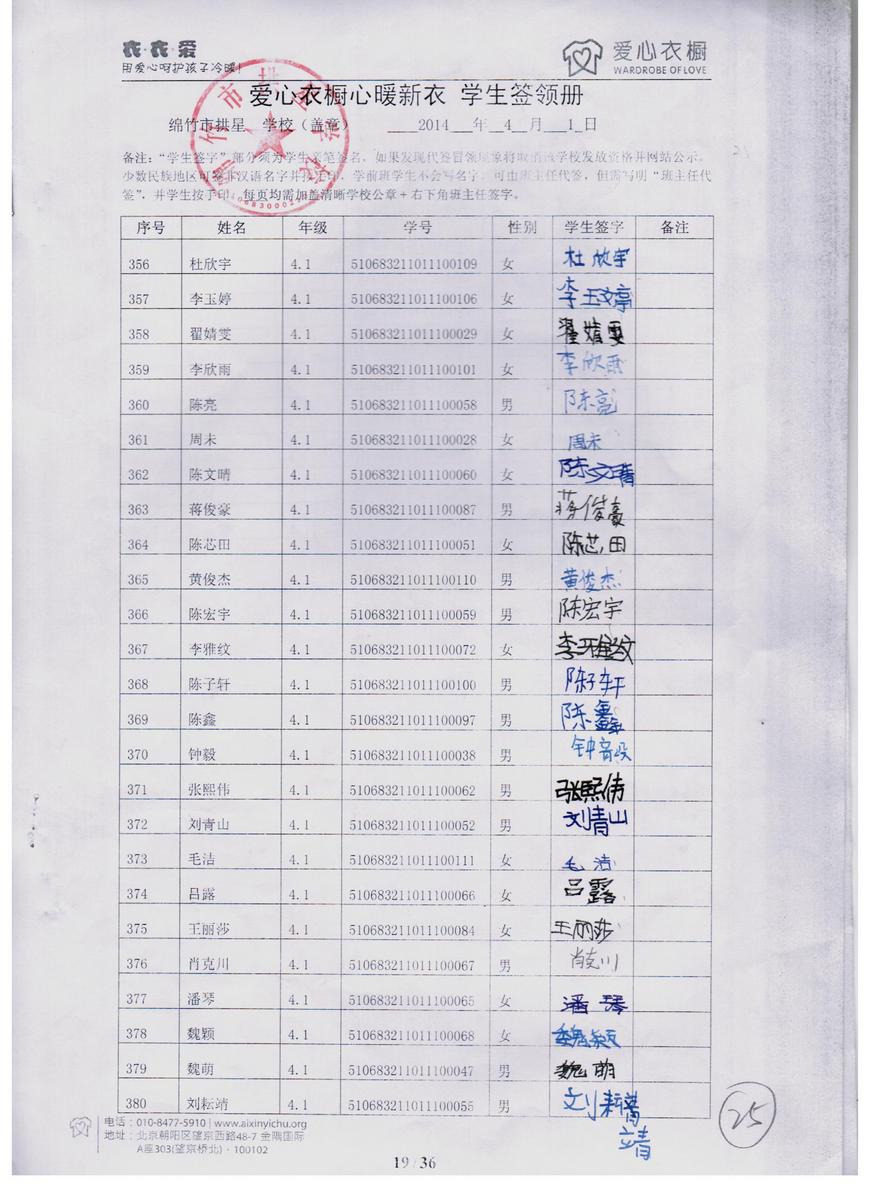 衣·衣·爱
用爱心呵护孩子冷暖!
爱心衣橱
WARDROBE OF LOVE
爱心衣橱心暖新衣 学生签领册
绵竹市拱星 学校（盖章） 2014 年 4 月 1 日
备注：“学生签字”部分须为学生亲笔签名，如果发现代签冒领现象将取消该学校发放资格并网站公示。
少数民族地区可签非汉语名字并按手印，学前班学生不会写名字，可由班主任代签，但需写明“班主任代
签”，并学生按手印。每页均需加盖清晰学校公章+右下角班主任签字。
序号 姓名 年级 学号 性别 学生签字 备注
356 杜欣宇 4.1 510683211011100109 女 杜欣宇
357 李玉婷 4.1 510683211011100106 女 李玉婷
358 翟婧雯 4.1 510683211011100029 女 翟婧雯
359 李欣雨 4.1 510683211011100101 女 李欣雨
360 陈亮 4.1 510683211011100058 男 陈亮
361 周未 4.1 510683211011100028 女 周未
362 陈文晴 4.1 510683211011100060 女 陈文晴
363 蒋俊豪 4.1 510683211011100087 男 蒋俊豪
364 陈芯田 4.1 510683211011100051 女 陈芯田
365 黄俊杰 4.1 510683211011100110 男 黄俊杰
366 陈宏宇 4.1 510683211011100059 男 陈宏宇
367 李雅纹 4.1 510683211011100072 女 李雅纹
368 陈子轩 4.1 510683211011100100 男 陈子轩
369 陈鑫 4.1 510683211011100097 男 陈鑫
370 钟毅 4.1 510683211011100038 男 钟毅
371 张熙伟 4.1 510683211011100062 男 张熙伟
372 刘青山 4.1 510683211011100052 男 刘青山
373 毛洁 4.1 510683211011100111 女 毛洁
374 吕露 4.1 510683211011100066 女 吕露
375 王丽莎 4.1 510683211011100084 女 王丽莎
376 肖克川 4.1 510683211011100067 男 肖克川
377 潘琴 4.1 510683211011100065 女 潘琴
378 魏颖 4.1 510683211011100068 女 魏颖
379 魏萌 4.1 510683211011100047 男 魏萌
380 刘耘靖 4.1 510683211011100055 男 刘耘
靖
25
电话：010-8477-5910 | www.aixinyichu.org
地址：北京朝阳区望京西路48-7 金隅国际
A座303(望京桥北)·100102
19 / 36